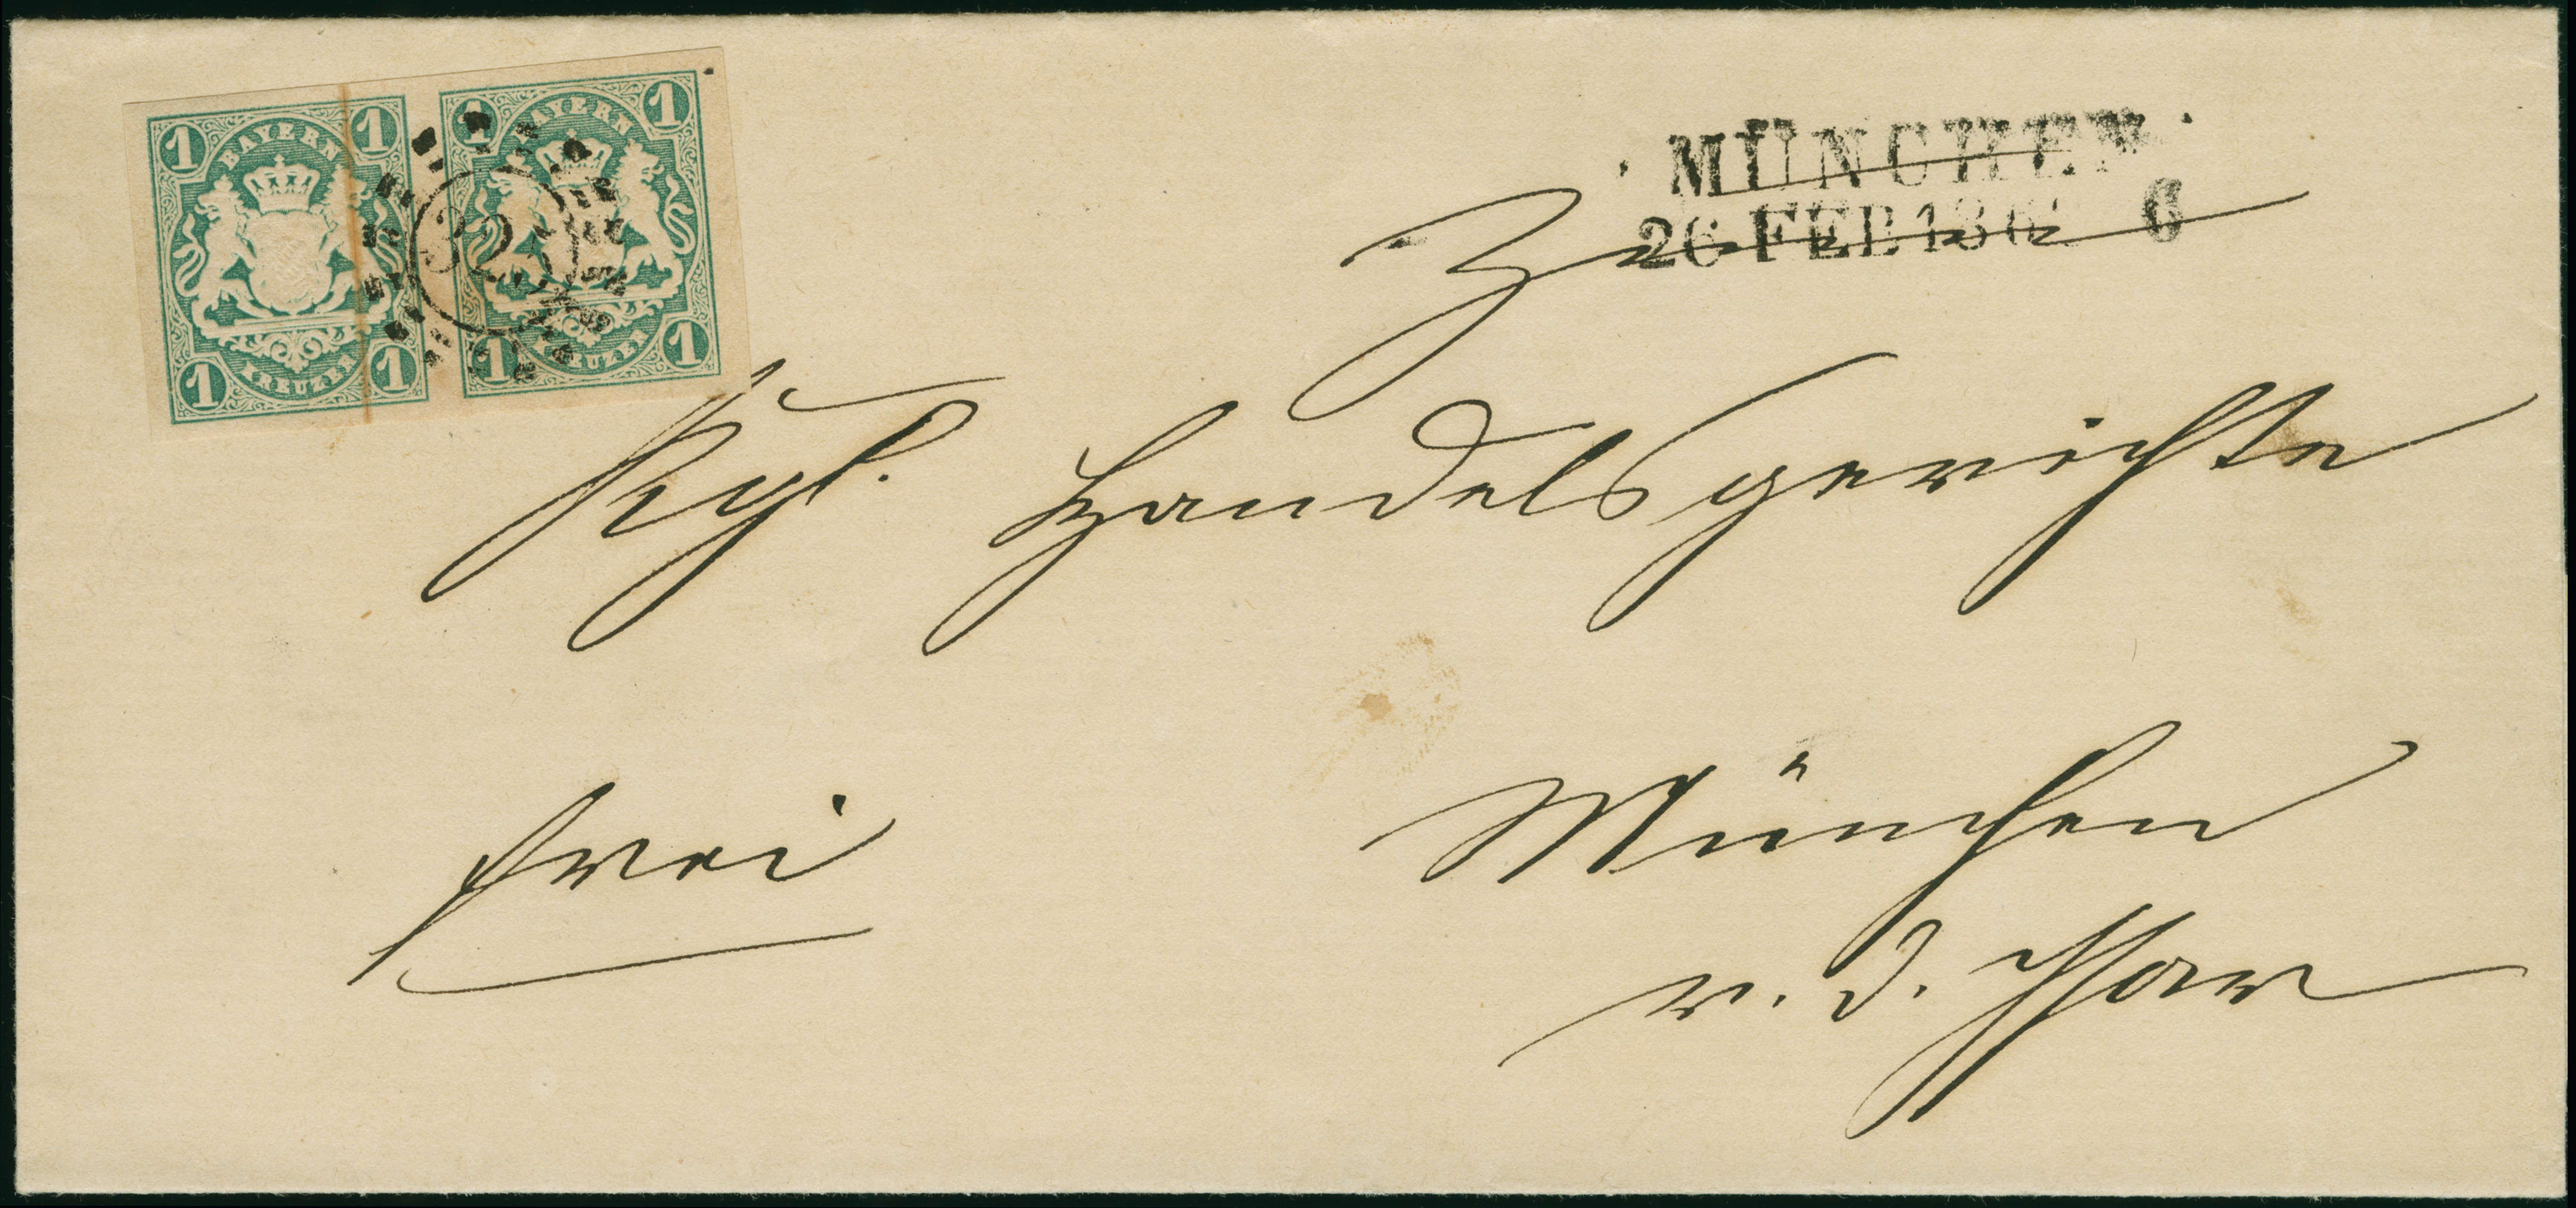 1 BAYERN 1
1 KREUZER 1
1 BAYERN 1
1 KREUZER 1
325
MÜNCHEN
26 FEB 186 6
Zum
Kgl. Handelsgerichte
frei
München
r. d. Isar